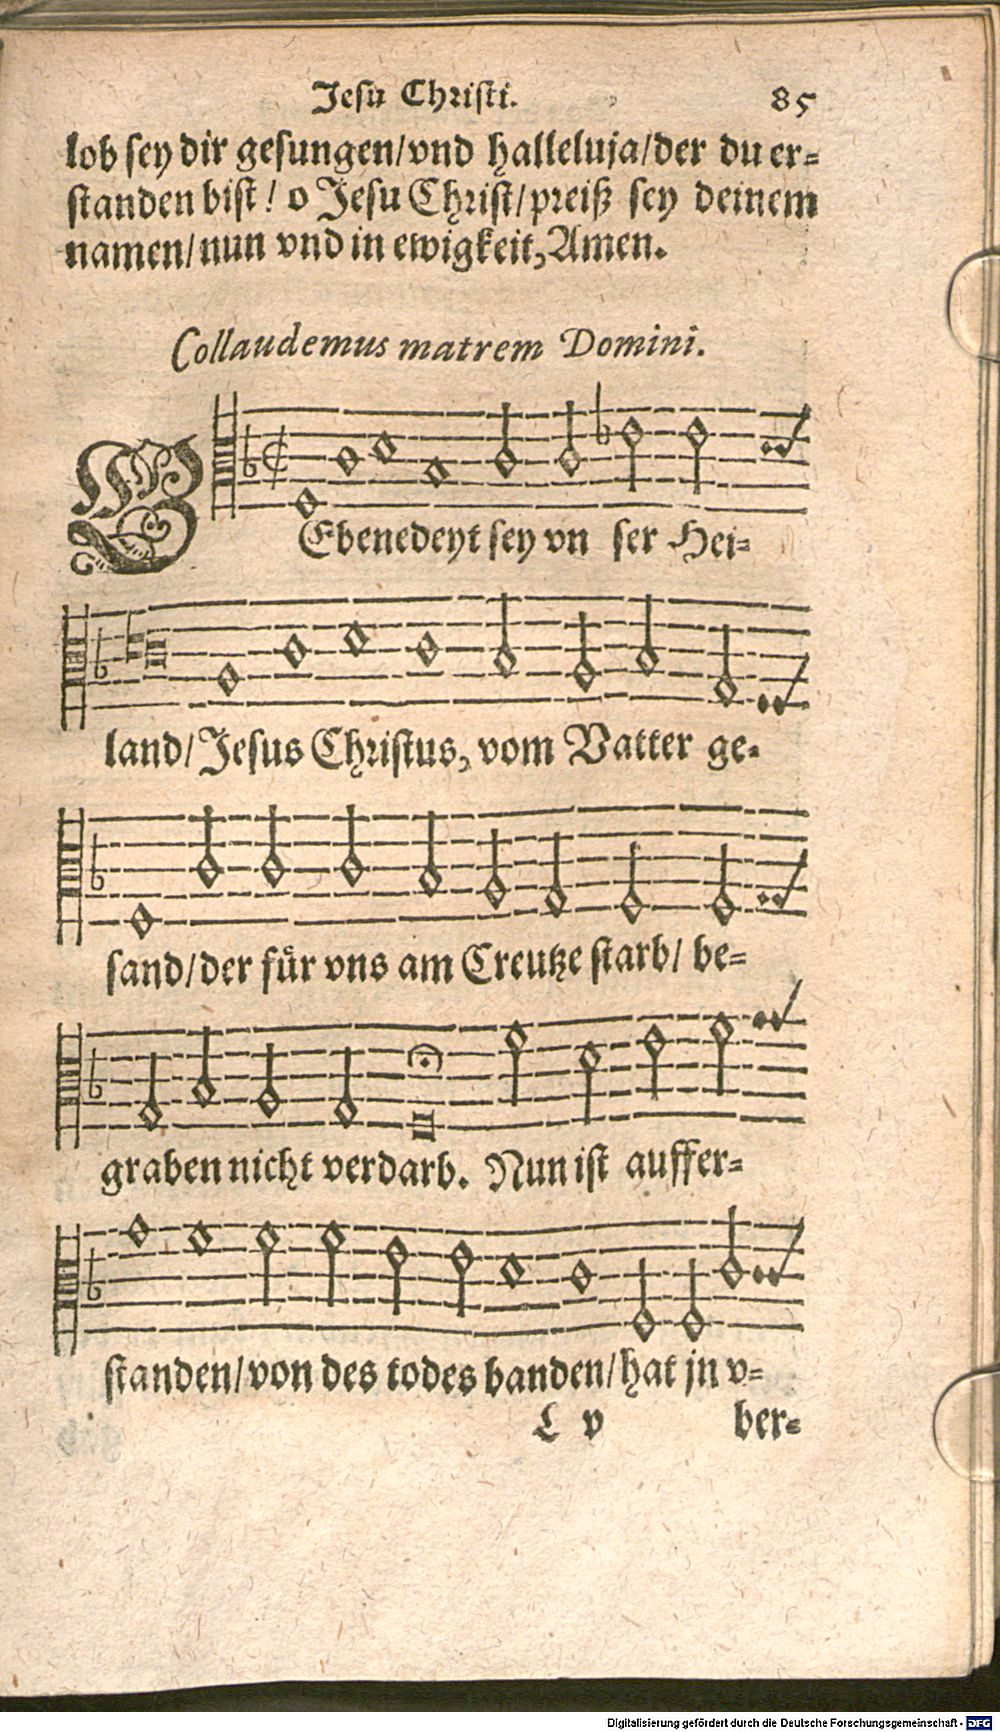 Jesu Christi. 85
lob sey dir gesungen/vnd halleluja/der du er=
standen bist! o Jesu Christ/preiß sey deinem
namen/nun vnd in ewigkeit, Amen.
Collaudemus matrem Domini.
GEbenedeyt sey vn ser Hei=
land/Jesus Christus, vom Vatter ge=
sand/der für vns am Creutze starb/ be=
graben nicht verdarb. Nun ist auffer=
standen/von des todes banden/hat jn v=
L v ber=
Digitalisierung gefördert durch die Deutsche Forschungsgemeinschaft - DFG